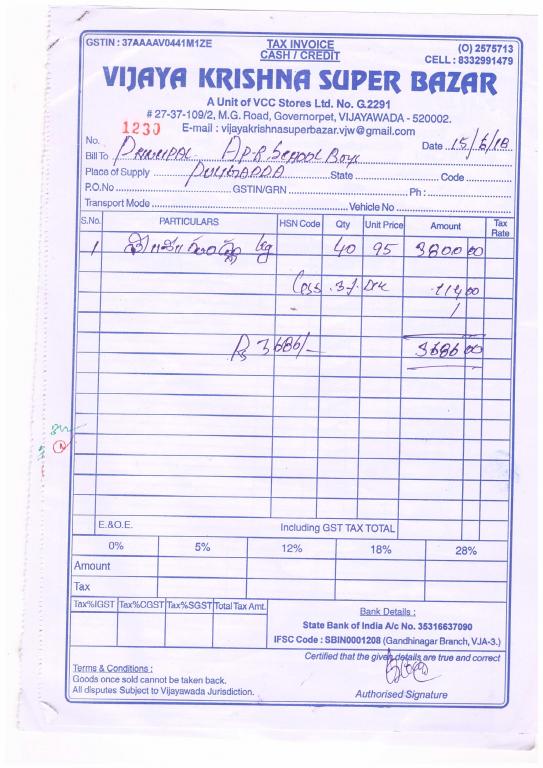 GSTIN : 37AAAAV0441M1ZE TAX INVOICE (O) 2575713
CASH / CREDIT CELL : 8332991479
VIJAYA KRISHNA SUPER BAZAR
A Unit of VCC Stores Ltd. No. G.2291
# 27-37-109/2, M.G. Road, Governorpet, VIJAYAWADA - 520002.
1230 E-mail : vijayakrishnasuperbazar.vjw@gmail.com
No. Date 15/6/18
Bill To Principal A.P.R. School Boys
Place of Supply State Code
P.O.No GSTIN/GRN Ph :
Transport Mode Vehicle No
S.No. PARTICULARS HSN Code Qty Unit Price Amount Tax Rate
1 kg 40 95 3800 00
Less 3% 114 00
Rs 3686/- 3686 00
E.&O.E. Including GST TAX TOTAL
0% 5% 12% 18% 28%
Amount
Tax
Tax%IGST Tax%CGST Tax%SGST Total Tax Amt.
Bank Details :
State Bank of India A/c No. 35316637090
IFSC Code : SBIN0001208 (Gandhinagar Branch, VJA-3.)
Certified that the given details are true and correct
Terms & Conditions :
Goods once sold cannot be taken back.
All disputes Subject to Vijayawada Jurisdiction.
Authorised Signature